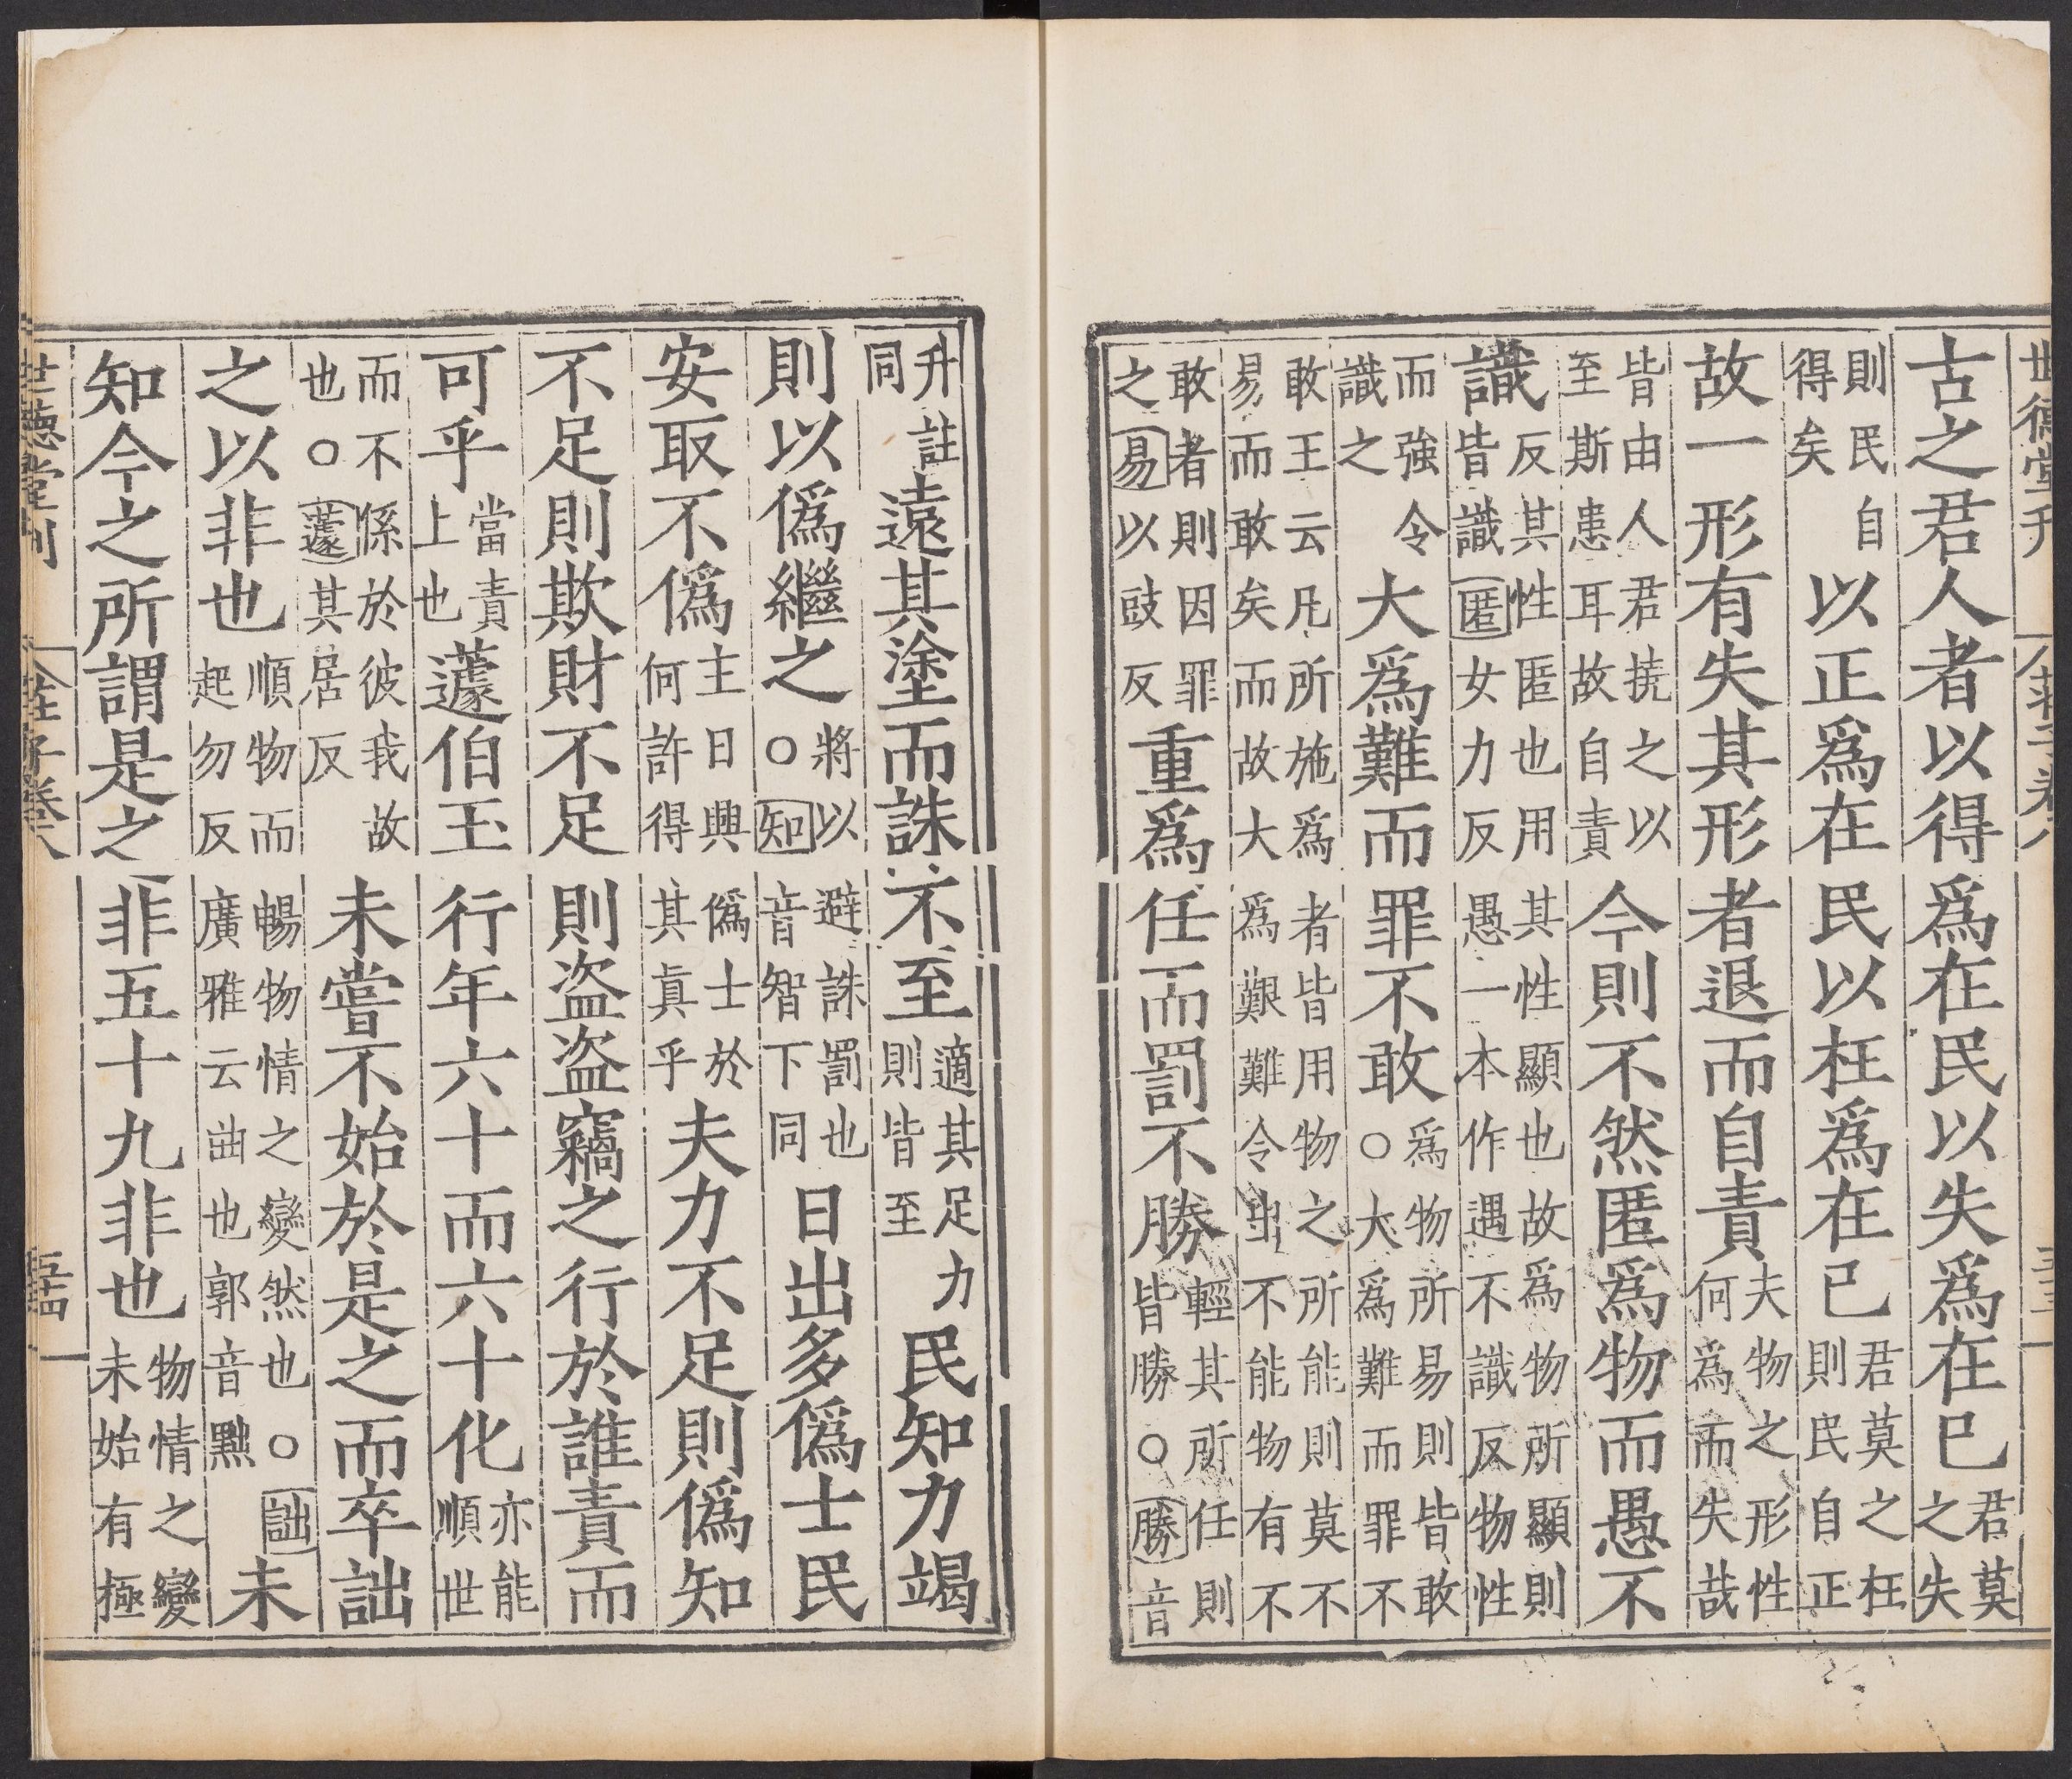 世德堂刊
莊子卷八
古之君人者以得爲在民以失爲在已君莫之失
則民自得矣以正爲在民以枉爲在已君莫之枉則民自正
故一形有失其形者退而自責夫物之形性何爲而失哉
皆由人君撓之以至斯患耳故自責今則不然匿爲物而愚不
識反其性匿也用其性顯也故爲物所顯則皆識匿女力反愚一本作遇不識反物性
而強令識之大爲難而罪不敢爲物所易則皆敢○大爲難而罪不
敢王云凡所施爲者皆用物之所能則莫不易而敢矣而故大爲艱難令出不能物有不
敢者則因罪之易以豉反重爲任而罰不勝輕其所任則皆勝○勝音
升註同遠其塗而誅不至適其足力則皆至民知力竭
則以僞繼之將以避誅罰也○知音智下同日出多僞士民
安取不僞主日興僞士於何許得其眞乎夫力不足則僞知
不足則欺財不足則盗盗竊之行於誰責而
可乎當責上也蘧伯玉行年六十而六十化亦能順世
而不係於彼我故也○蘧其居反未嘗不始於是之而卒詘
之以非也順物而暢物情之變然也○詘起勿反廣雅云曲也郭音黜未
知今之所謂是之非五十九非也物情之變未始有極
世德堂刊
莊子卷八